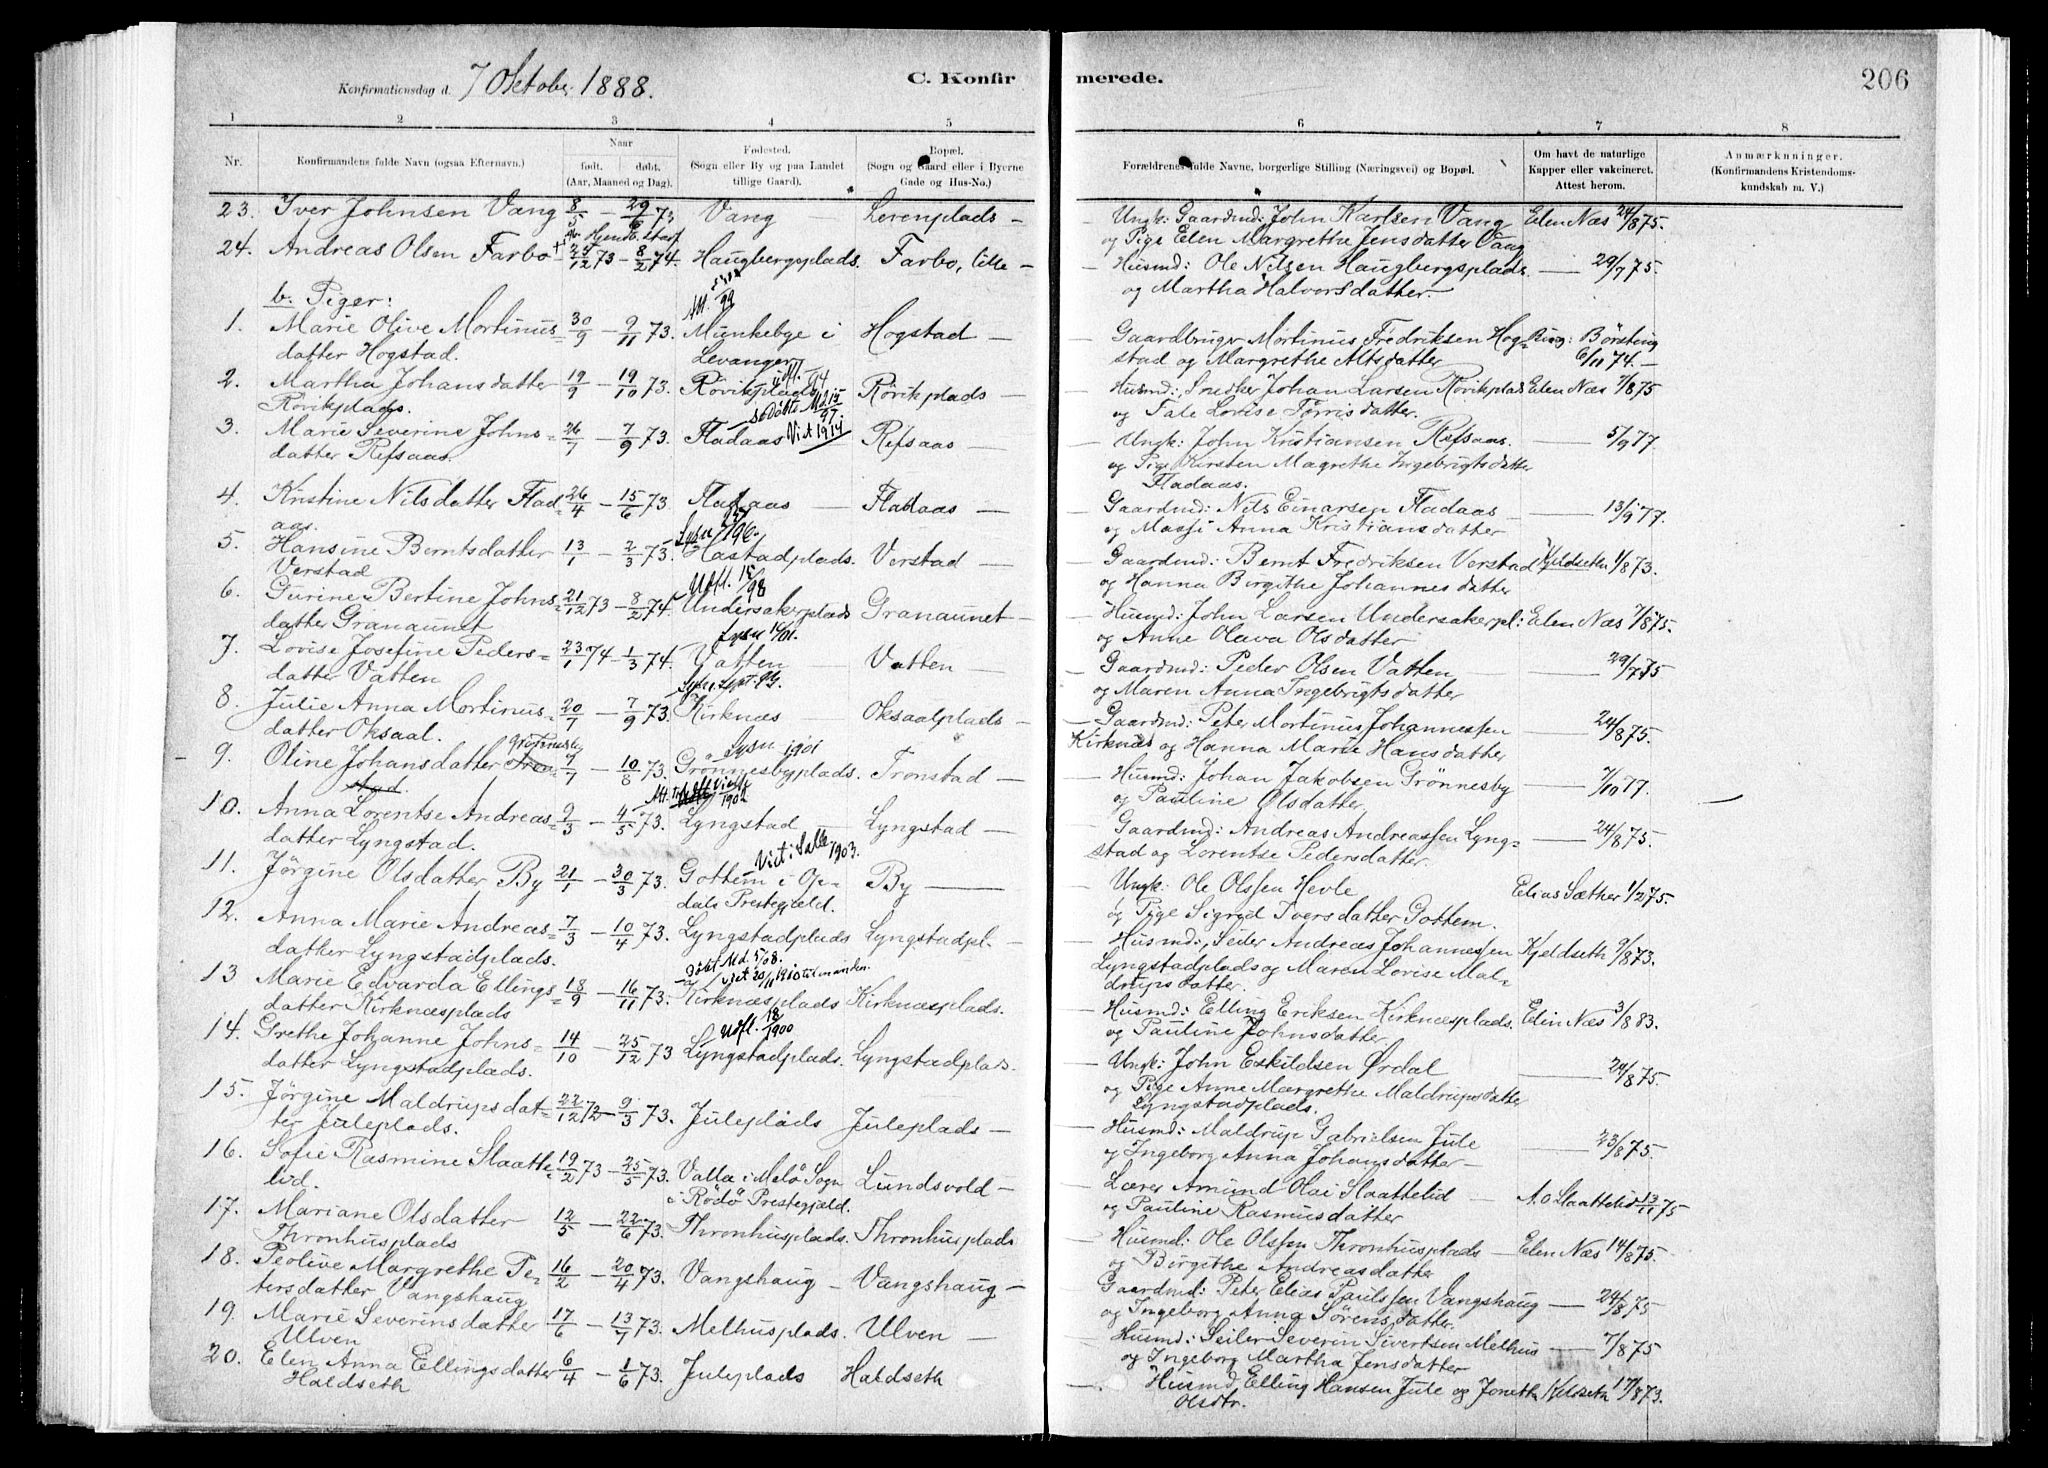 Konfirmationsdag d. 7 Oktober 1888.
C. Konfir
merede.
206
1 2 3 4 5 6 7 8
Nr.
Konfirmandens fulde Navn (ogsaa Efternavn).
Naar
født. døbt.
(Aar, Maaned og Dag).
Fødested.
(Sogn eller By og paa Landet
tillige Gaard).
Bopæl.
(Sogn og Gaard eller i Byerne
Gade og Hus-No.)
Forældrenes fulde Navne, borgerlige Stilling (Næringsvei) og Bopæl.
Om havt de naturlige
Kapper eller vakcineret.
Attest herom.
Anmærkninger.
(Konfirmandens Kristendoms-
kundskab m. V.)
23. Iver Johnsen Vang 8/5 — 29/6 73 Vang — Lerenplads — Ungk: Gaardmd: John Karlsen Vang Elen Næs 24/8 75.
og Pige Elen Margrethe Jensdatter Vang
24. Andreas Olsen Farbo 25/12 73 — 8/2 74. Haugbergsplads. Farbo, lille — Husmd: Ole Nilsen Haugbergsplads. — 29/7 75.
og Martha Halvorsdatter.
b. Piger:
1. Marie Olive Mortinus= 30/9 — 9/11 73. Munkebye i Hogstad — Gaardbruger Mortinus Fredriksen Hog= Ring: Börsting
datter Hogstad. Levanger stad og Margrethe Altsdatter 6/11 74. —
2. Martha Johansdatter 19/9 — 19/10 73. Rövikplads Rövikplads — Husmd:, Snedker Johan Larsen Rövikplads Elen Næs 7/8 75
Rövikplads. og Tale Lovise Törrisdatter.
3. Marie Severine Johns= 26/7 — 7/9 73. Fladaas Vist 1914 Refsaas — Ungk: John Kristiansen Refsaas. — 5/9 77.
datter Refsaas. og Pige Kirsten Magrethe Ingebrigtsdatter
Fladaas.
4. Kristine Nilsdatter Flad= 26/4 — 15/6 73. Fladaas — Fladaas — Gaardmd: Nils Einarsen Fladaas — 13/9 77.
aas. og Massi Anna Kristiansdatter
5. Hansine Berntsdatter 13/1 — 2/3 73. Hastadplads. Verstad — Gaardmd: Bernt Fredriksen Verstad Kjeldseth 1/8 73.
Verstad og Hanna Birgithe Johannesdatter
Udfl. 15/ 98
6. Gurine Bertine Johns= 21/12 73 — 8/2 74. Undersakerplads Granaunet — Husmd: John Larsen Undersakerpl: Elen Næs 7/8 75.
datter Granaunet og Anne Olava Olsdatter
7. Lovise Josefine Peders= 23/1 74 — 1/3 74. Vatten — Vatten — Gaardmd: Peder Olsen Vatten — 29/7 75
datter Vatten og Maren Anna Ingebrigtsdatter
8. Julie Anna Mortinus= 20/7 — 7/9 73. Kirknæs — Oksaalplads — Gaardmd: Peter Mortinus Johannessen — 24/8 75.
datter Oksaal. Kirknæs og Hanna Marie Hansdatter
Lysn 1901
9. Oline Johansdatter Tron= 7/7 — 10/8 73. Grönnesbyplads. Tronstad — Husmd: Johan Jakobsen Grönnesby — 7/10 77.
stad. og Pauline Olsdatter
10. Anna Lorentse Andreas= 9/3 — 4/5 73. Lyngstad — Lyngstad — Gaardmd: Andreas Andreassen Lyng= — 24/8 75.
datter Lyngstad. stad og Lorentse Pedersdatter.
11. Jörgine Olsdatter By 21/1 — 30/3 73. Gottem i Op= By — Ungk: Ole Olssen Hevle Elias Sæther 1/2 75.
dals Prestegjeld. og Pige Sigrid Iversdatter Gottem.
12. Anna Marie Andreas= 7/3 — 10/4 73. Lyngstadplads Lyngstadpl- — Husmd:, Seiler Andreas Johannessen Kjeldseth 9/8 73.
datter Lyngstadplads. Lyngstadplads og Maren Lovise Mal=
drupsdatter.
13 Marie Edvarda Ellings= 18/9 — 16/11 73. Kirknæsplads Kirknæsplads. Husmd: Elling Eriksen Kirknæsplads. Elin Næs 3/8 83.
datter Kirknæsplads og Pauline Johnsdatter
Udfl. 18/ 1900
14. Grethe Johanne Johns= 14/10 — 25/12 73 Lyngstadplads. Lyngstadplads. Ungk: John Eskildsen Ørdal — 24/8 75.
datter Lyngstadplads. og Pige Anne Margrethe Maldrupsdatter
Lyngstadplads.
15. Jörgine Maldrupsdat= 22/12 72 — 9/3 73. Juleplads Juleplads — Husmd: Maldrup Gabrielsen Jule — 23/8 75.
ter Juleplads. og Ingeborg Anna Johansdatter —
16. Sofie Rasmine Slaatte= 19/2 73 — 25/5 73. Valla i Melö Sogn Lundsvold — Lærer Amund Olai Slaattelid — A. O Slaattelid 13/11 75
lid. i Rödö Prestegjæld. og Pauline Rasmusdatter
17. Mariane Olsdatter 12/5 — 22/6 73. Thronhusplads. Thronhusplads Husmd: Ole Olssen Thronhusplads — Elen Næs 14/8 75.
Thronhusplads og Birgithe Andreasdatter
18. Peolive Margrethe Pe= 16/2 — 20/4 73. Vangshaug — Vangshaug — Gaardmd: Peter Elias Paulssen Vangshaug — 24/8 75
tersdatter Vangshaug og Ingeborg Anna Sörensdatter.
19. Marie Severinsdatter 17/6 — 13/7 73. Melhusplads. Ulven — Husmd: Seiler Severin Sivertsen Melhus — 7/8 75
Ulven og Ingeborg Martha Jensdatter
20. Elen Anna Ellingsdatter 6/4 — 1/6 73. Juleplads Haldseth — Husmd Elling Hansen Jule og Joneth Kjeldseth 17/8 73.
Haldseth Olsdtr.